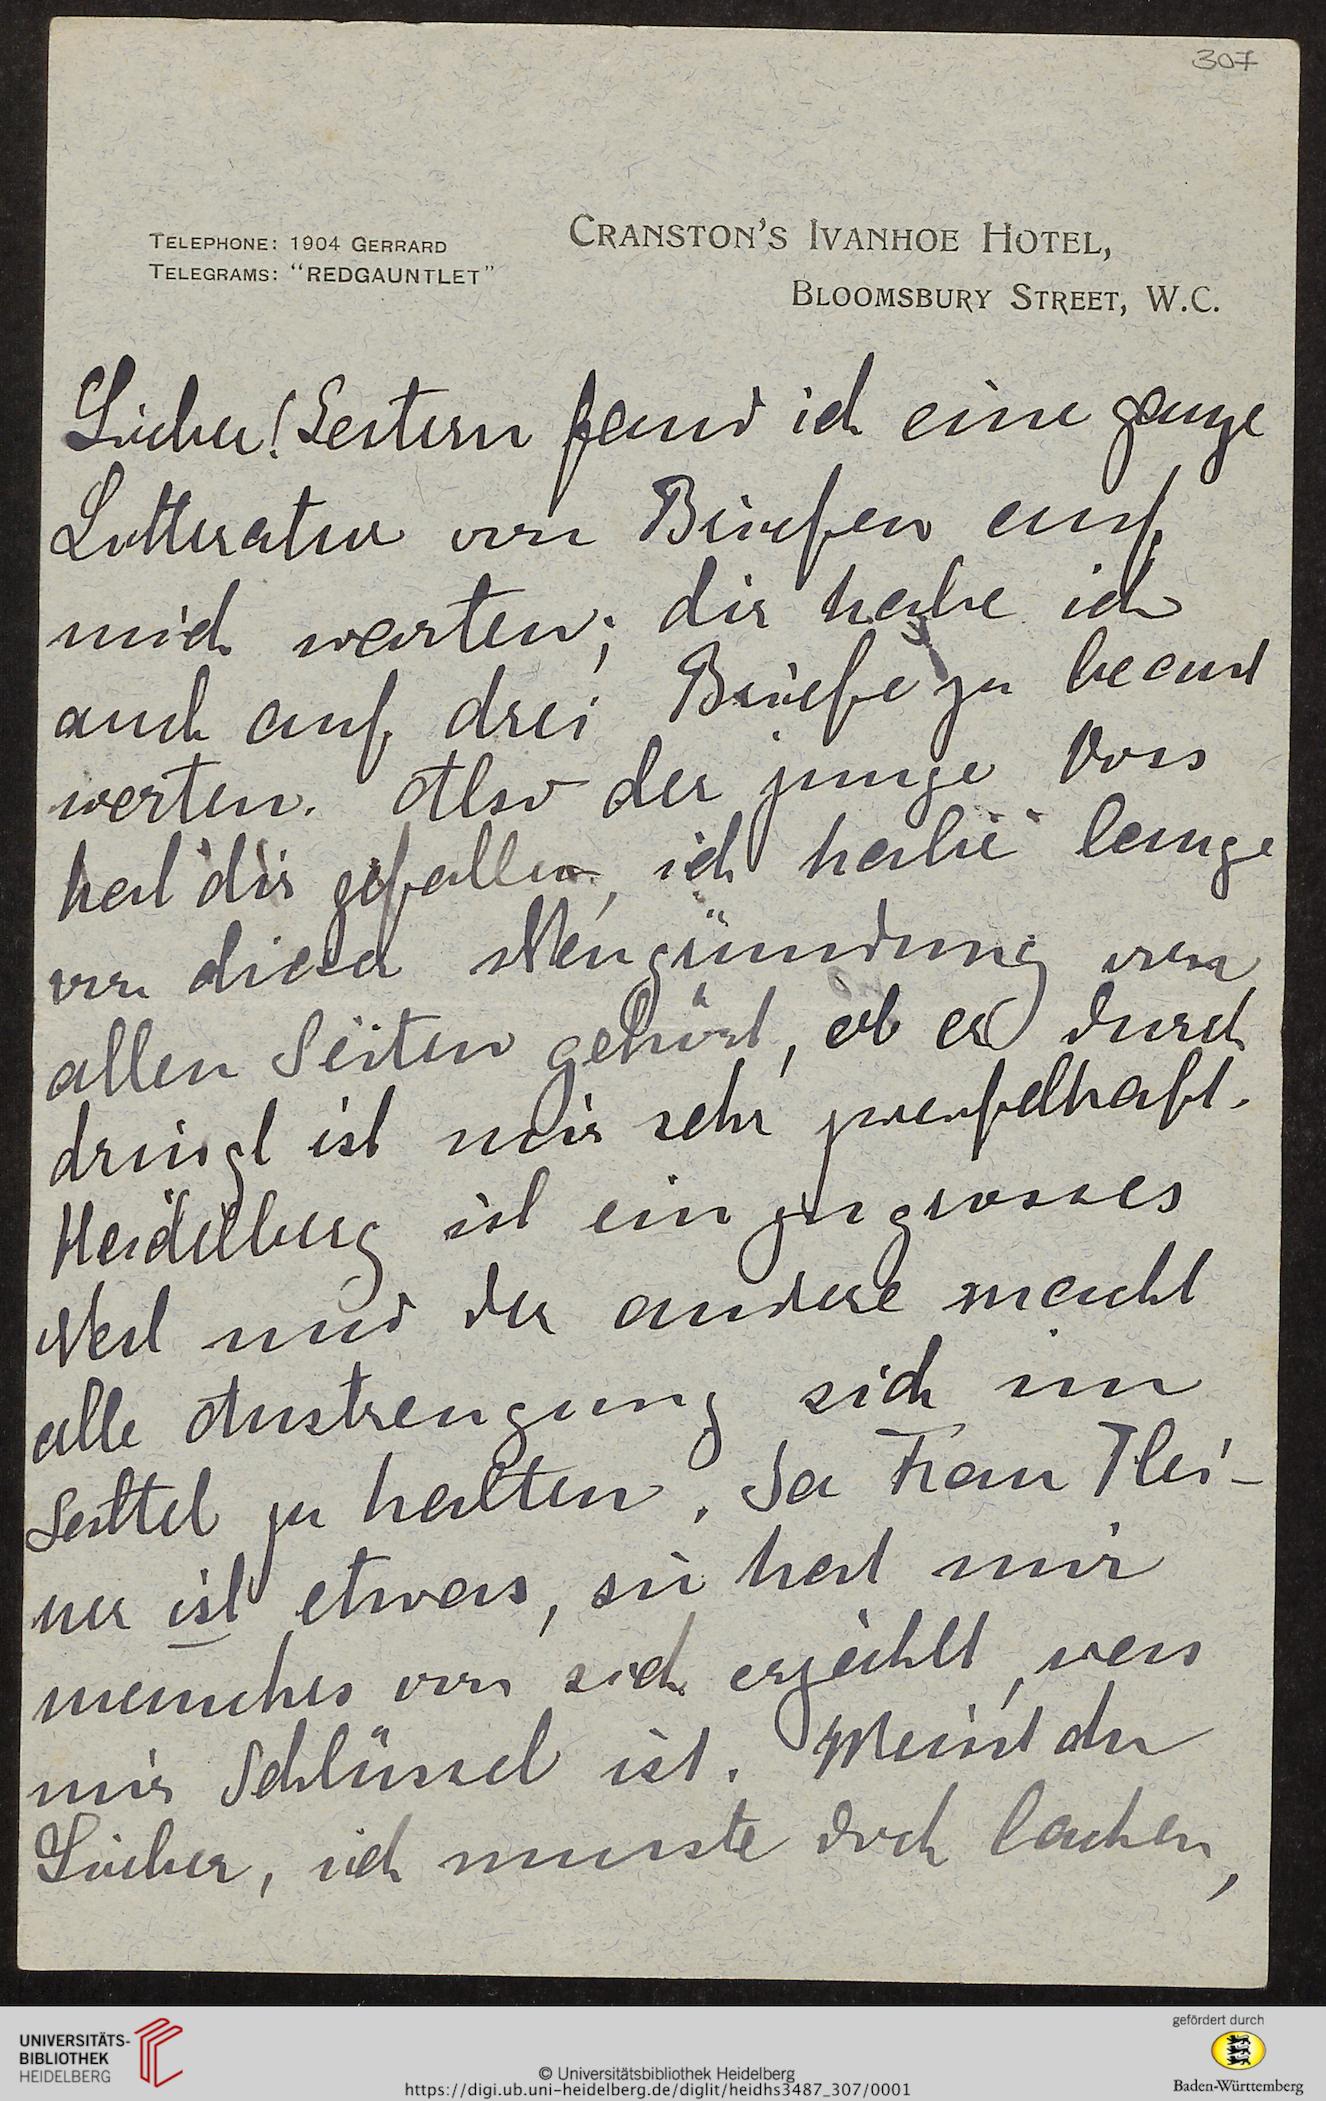 307
TELEPHONE: 1904 GERRARD
TELEGRAMS: "REDGAUNTLET"
CRANSTON'S IVANHOE HOTEL,
BLOOMSBURY STREET, W.C.
Lieber! Gestern fand ich eine ganze
Litteratur von Briefen auf
mich warten; dir habe ich
auch auf drei Briefe zu beant
worten. Also der junge Voss
hat dir gefallen, ich habe lange
von dieser Neugründung von
allen Seiten gehört, ob er durch
dringt ist mir sehr zweifelhaft.
Heidelberg ist ein zu grosses
Nest und der andere macht
alle Anstrengung sich im
Sattel zu halten. Ja Frau Flei-
ner ist etwas, sie hat mir
manches von sich erzählt, was
mir Schlüssel ist. Meinst du
Lieber, ich musste doch lachen,
UNIVERSITÄTS-
BIBLIOTHEK
HEIDELBERG
© Universitätsbibliothek Heidelberg
https://digi.ub.uni-heidelberg.de/diglit/heidhs3487_307/0001
gefördert durch
Baden-Württemberg